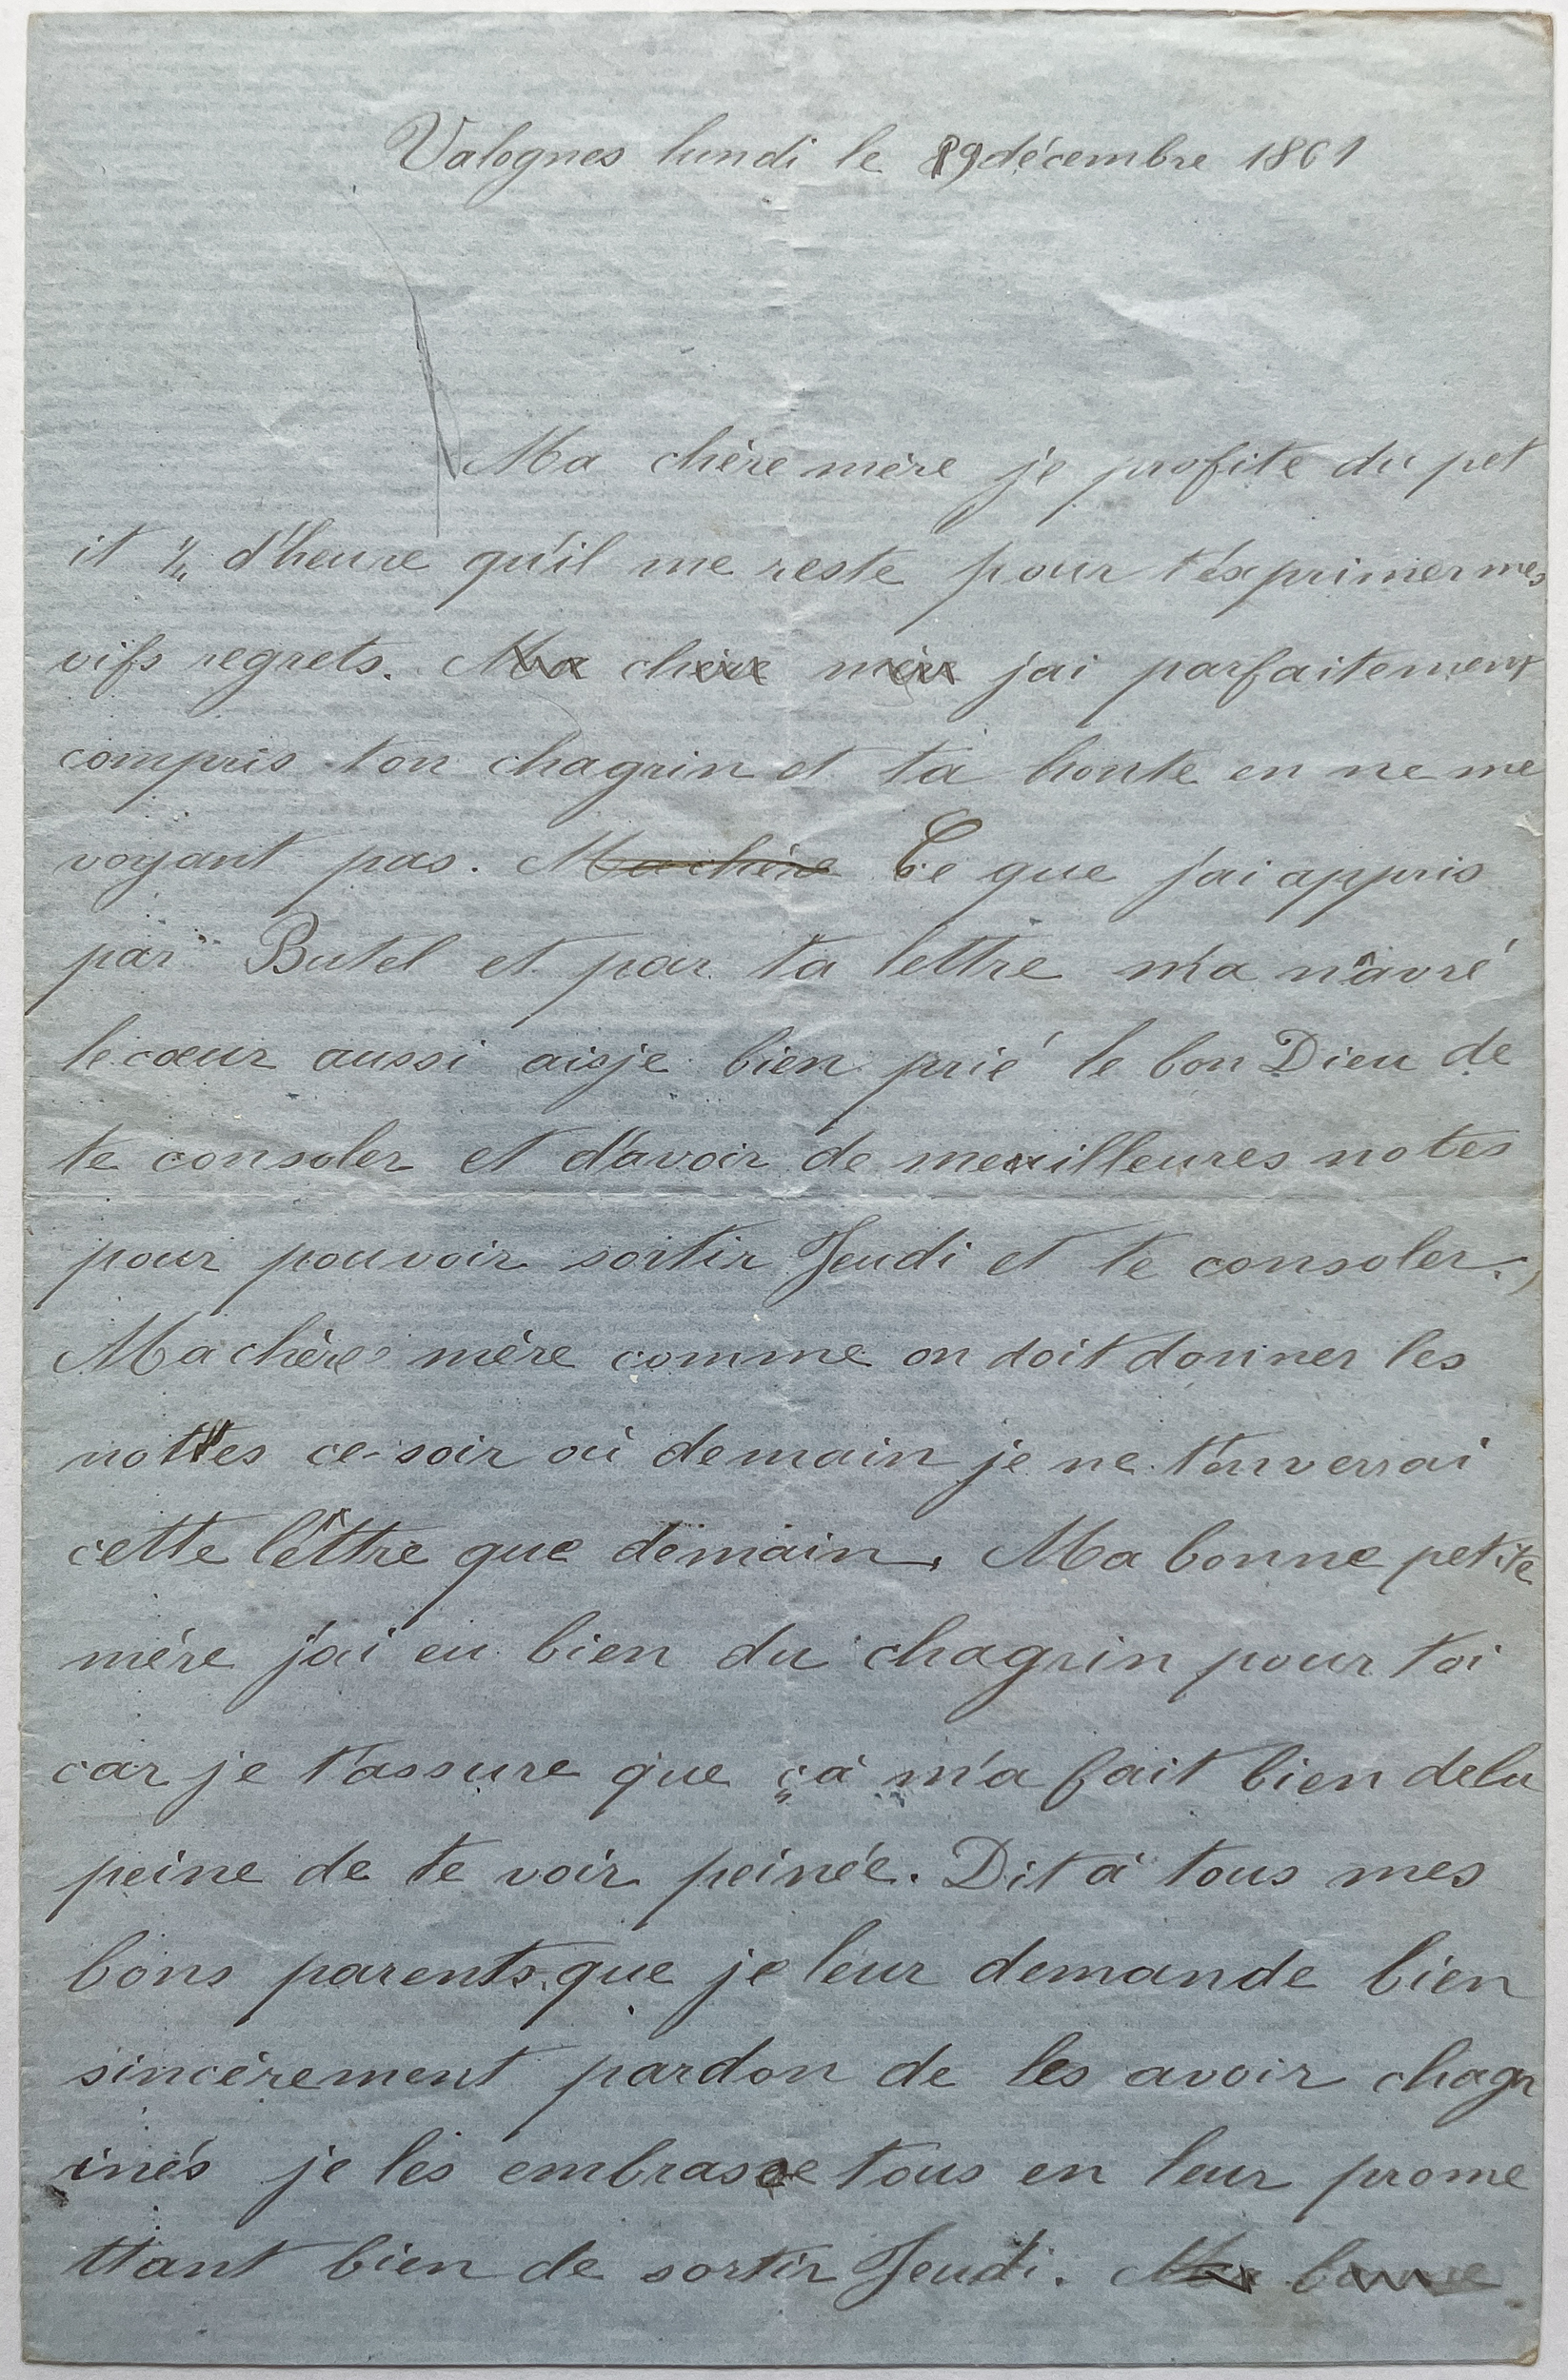 Valognes lundi le 9 décembre 1861
Ma chère mère je profite du pet
it ¼ d'heure qu'il me reste pour t'éxprimer mes
vifs regrets. Ma chère mère jai parfaitement
compris ton chagrin et ta honte en ne me
voyant pas. Ma chère Ce que j'ai appris
par Butel et par ta lettre m'a navré
le cœur aussi aisje bien prié le bon Dieu de
te consoler et d'avoir de meuilleures notes
pour pouvoir sortir Jeudi et te consoler.
Ma chère mère comme on doit donner les
nottes ce-soir où demain je ne t'enverrai
cette lettre que demain. Ma bonne petite
mère j'ai eu bien du chagrin pour toi
car je t'assure que çà m'a fait bien dela
peine de te voir peinée. Dit à tous mes
bons parents que je leur demande bien
sincèrement pardon de les avoir chagr
inés je les embrasse tous en leur prome
ttant bien de sortir Jeudi. Ma bonne